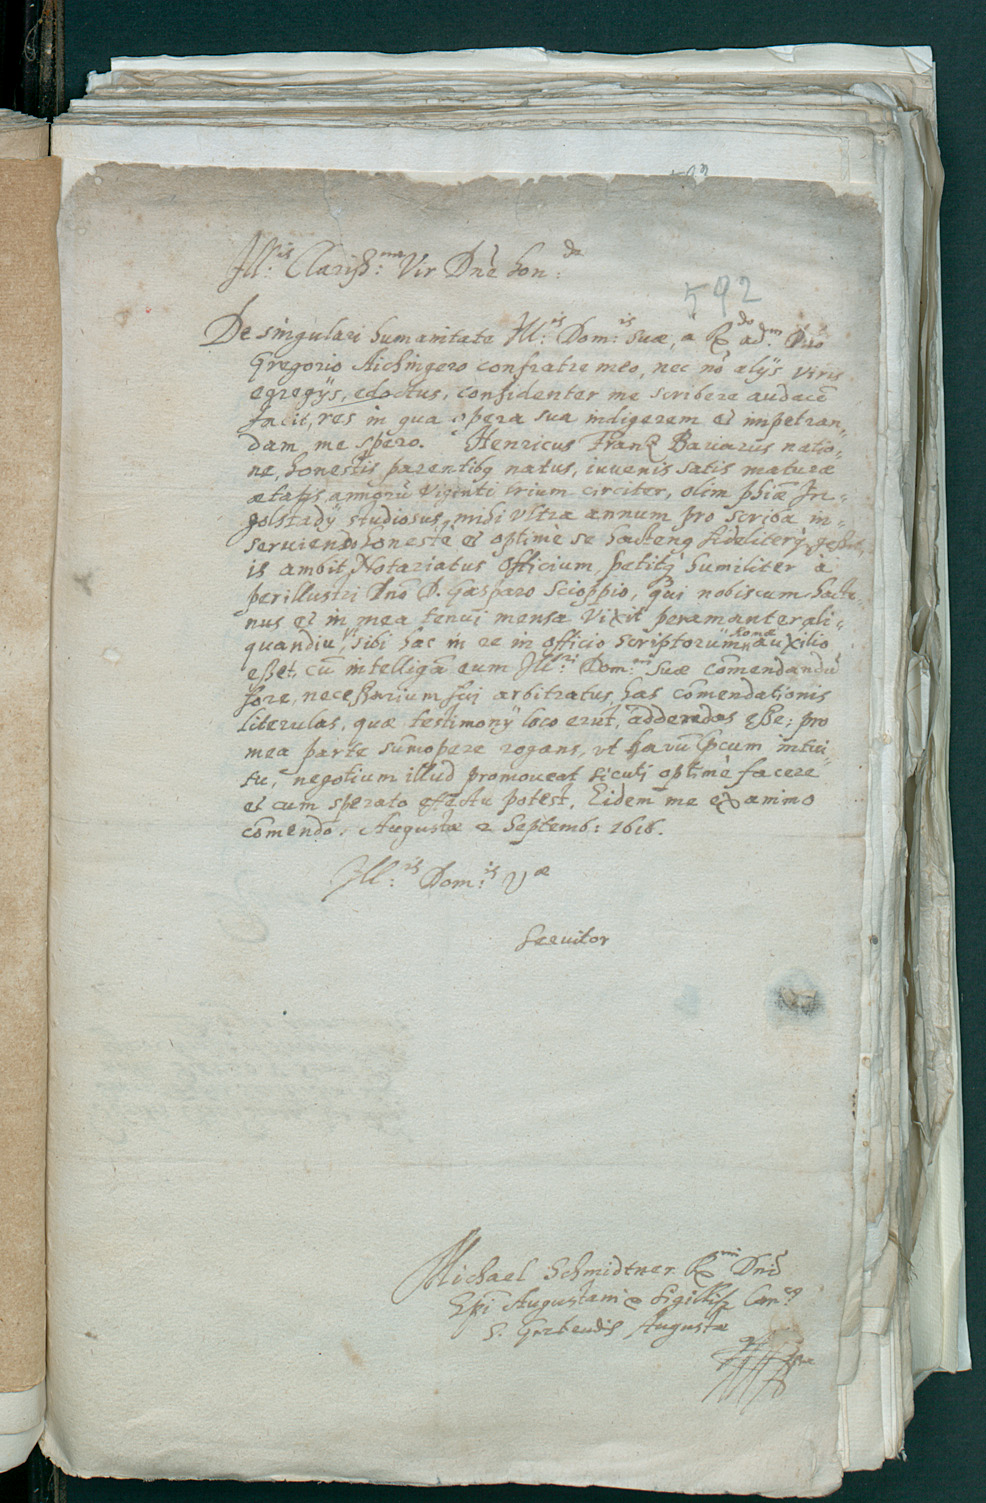 Ill:is Clariss:me Vir Dne hon:de
592
De singulari humanitate Ill:is Dom:is suæ, a R.do ad.m Dno
Gregorio Aichingero confratre meo, nec nō alijs viris
egregijs, edoctus, confidenter me scribere audacē
facit, res in qua opera sua indigerem et impetran„
dam me spero. Henricus Franz Bavarus natio„
ne, honestis parentibq natus, iuvenis satis maturæ
ætatis, annorū viginti trium circiter, olim phiæ In„
golstadij studiosus, mihi vltra annum pro scriba in„
serviendo honestè et optimè se hactenq fideliterq gessit,
is ambit Notariatus Officium, petitq humiliter à
perillustri Dno D. Gasparo Scioppio, qui nobiscum hacte„
nus et in mea tenui mensa vixit peramanter ali„
quandiu, vt sibi hac in re in officio scriptorum Romæ auxilio
esset, cū intelligā eum Ill:ri Dom:ni suæ comendandū
fore, necessarium fui arbitratus, has comendationis
literulas, quæ testimonij loco erūt, adderedas esse; pro
mea parte sumopere rogans, vt harū intui„
tu, negotium illud promoveat sicuti optimè facere
et cum sperato effectu potest, Eidem me ex animo
comendo. Augustæ 2 Septemb: 1616.
Ill:is Dom:is Væ
Servitor
Michael Schmidtner R.mi Dni
Epi Augustani Sigillif: Can:cq
S. Gertrudis Augustæ